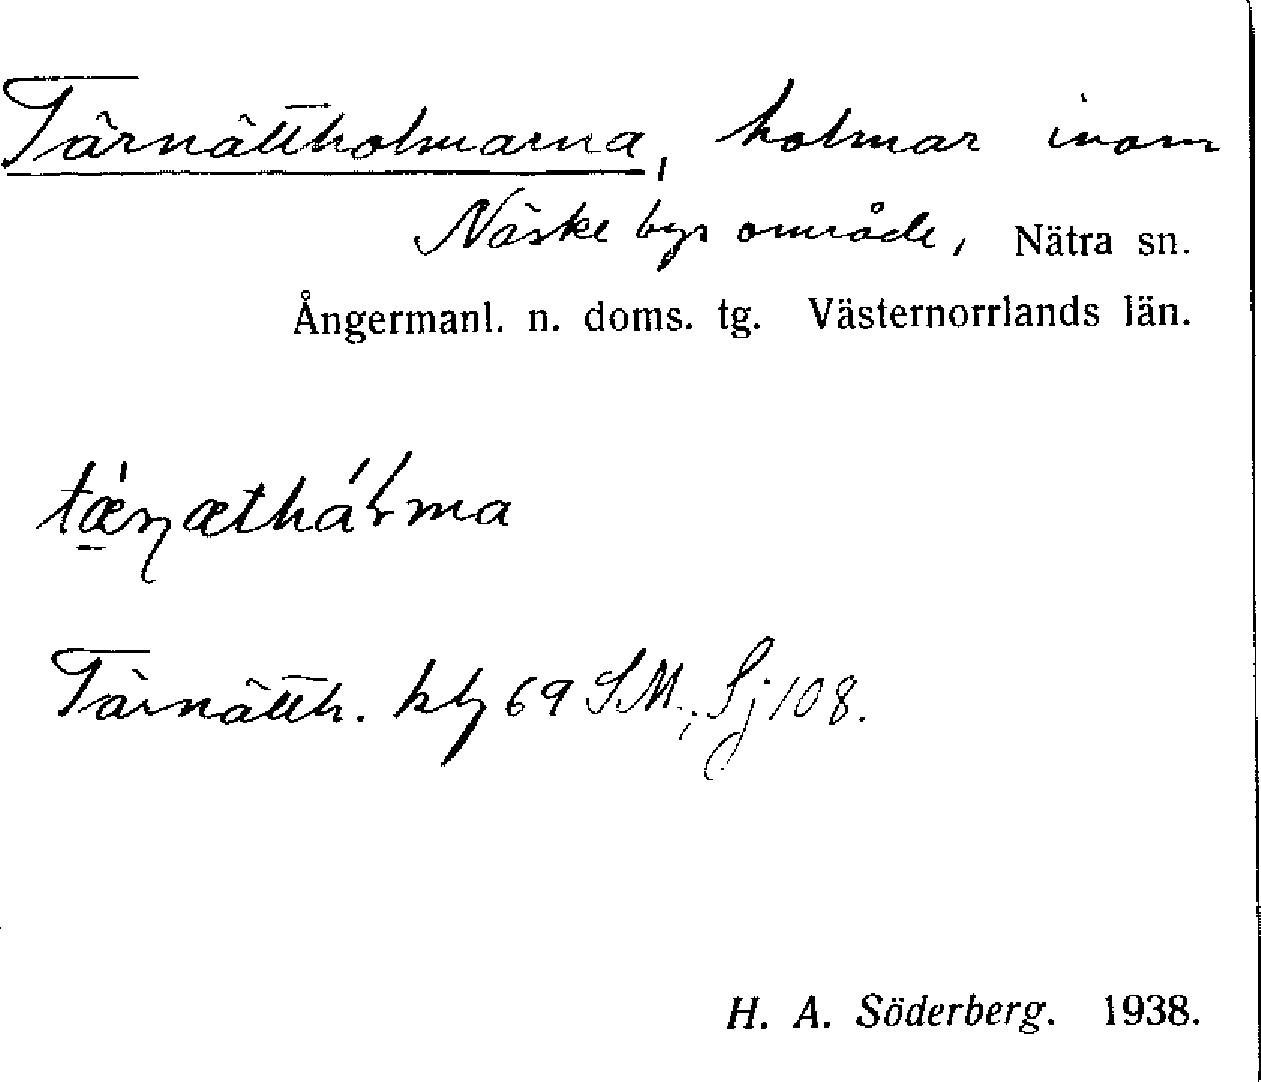 Tärnättholmarna, holmar inom
Näske bys område, Nätra sn.
Ångermanl. n. doms. tg. Västernorrlands län.
tæ̀ɳætháɽma
Tärnätth. kbl 69 SM; Sj 108.
H. A. Söderberg. 1938.